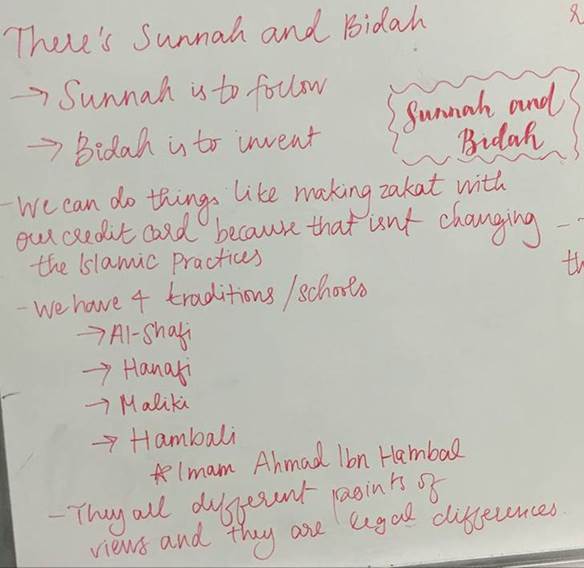 There's Sunnah and Bidah
→ Sunnah is to follow
→ Bidah is to invent
Sunnah and
Bidah
- We can do things like making zakat with
our credit card because that isnt changing
the Islamic Practices
- We have 4 traditions/schools
→ Al-Shafi
→ Hanafi
→ Maliki
→ Hambali
* Imam Ahmad Ibn Hambal
- They all different points of
views and they are legal differences.
th